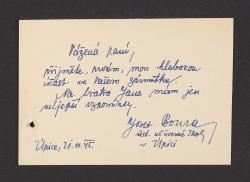 Vážená paní,
přijměte, prosím, mou hlubokou
účast ve Vašem zármutku.
Na bratra Jana mám jen
nejlepší vzpomínky.
Josef
řed. měšťanské školy
v Úpici
Úpice, 21. 11. 45.